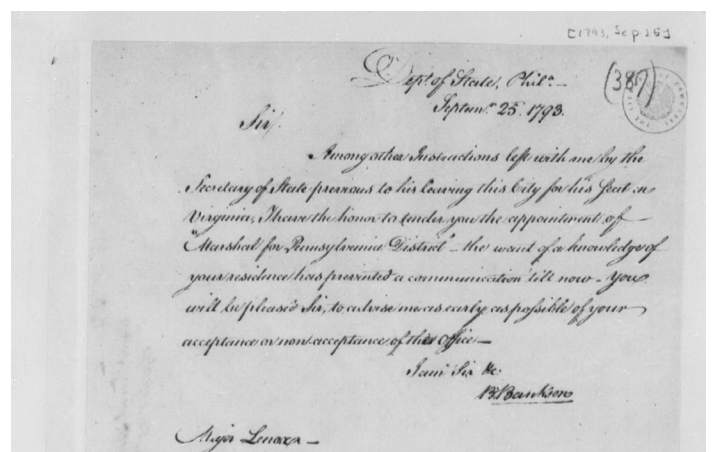 [1793, Sep 25]
(387)
Dept of State, Phila.
Septemr. 25. 1793.
Sir,
Among other Instructions left with me by the
Secretary of State previous to his leaving this City for his Seat in
Virginia, I have the honor to tender you the appointment of
"Marshal for Pennsylvania District" – the want of a knowledge of
your residence has prevented a communication till now – You
will be pleased Sir, to advise me as early as possible of your
acceptance or non acceptance of this Office –
I am Sir &c
B. Bankson
Major Lenox –